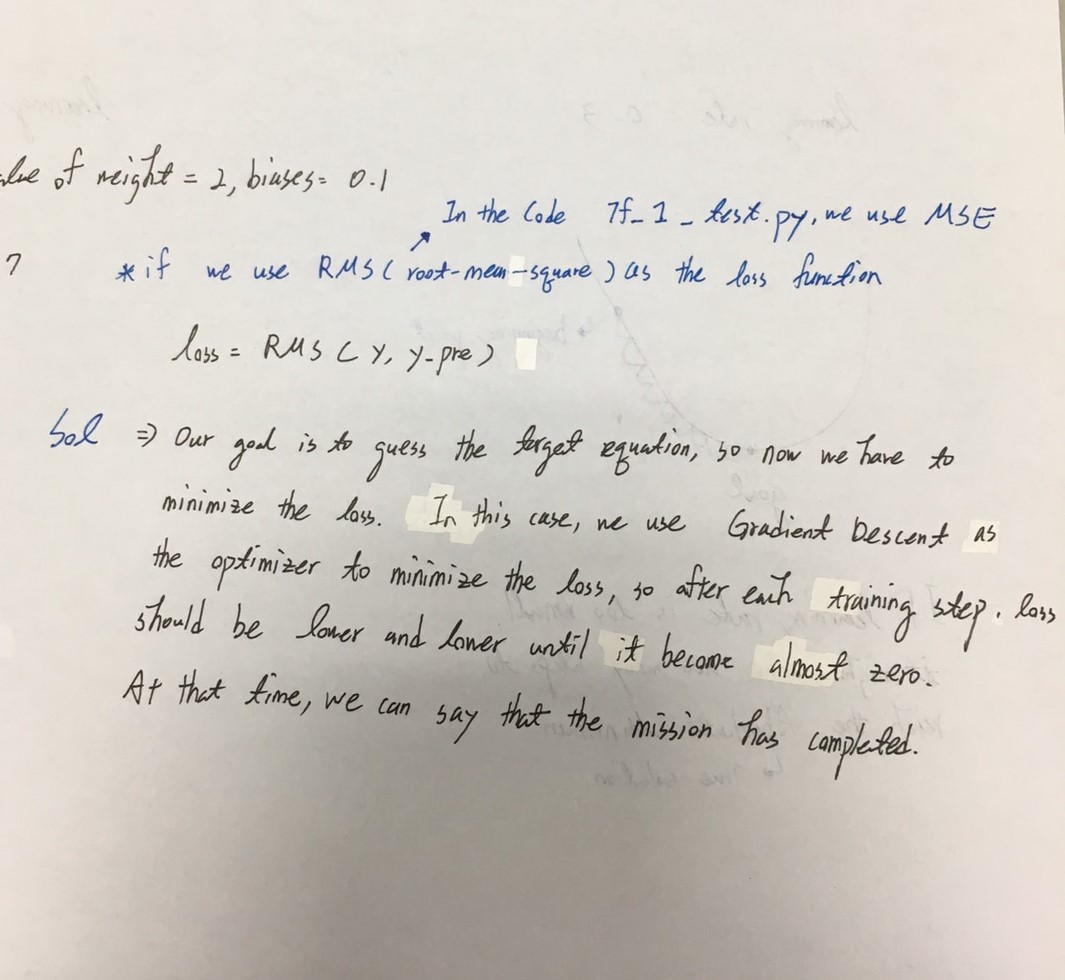 of weight = 2, biases= 0.1
In the Code Tf_1_test.py, we use MSE
7 * if we use RMS ( root-mean-square ) as the loss function
loss = RMS ( Y, Y-pre )
Sol ⇒ Our goal is to guess the target equation, so now we have to
minimize the loss. In this case, we use Gradient Descent as
the optimizer to minimize the loss, so after each training step. loss
should be lower and lower until it become almost zero.
At that time, we can say that the mission has completed.